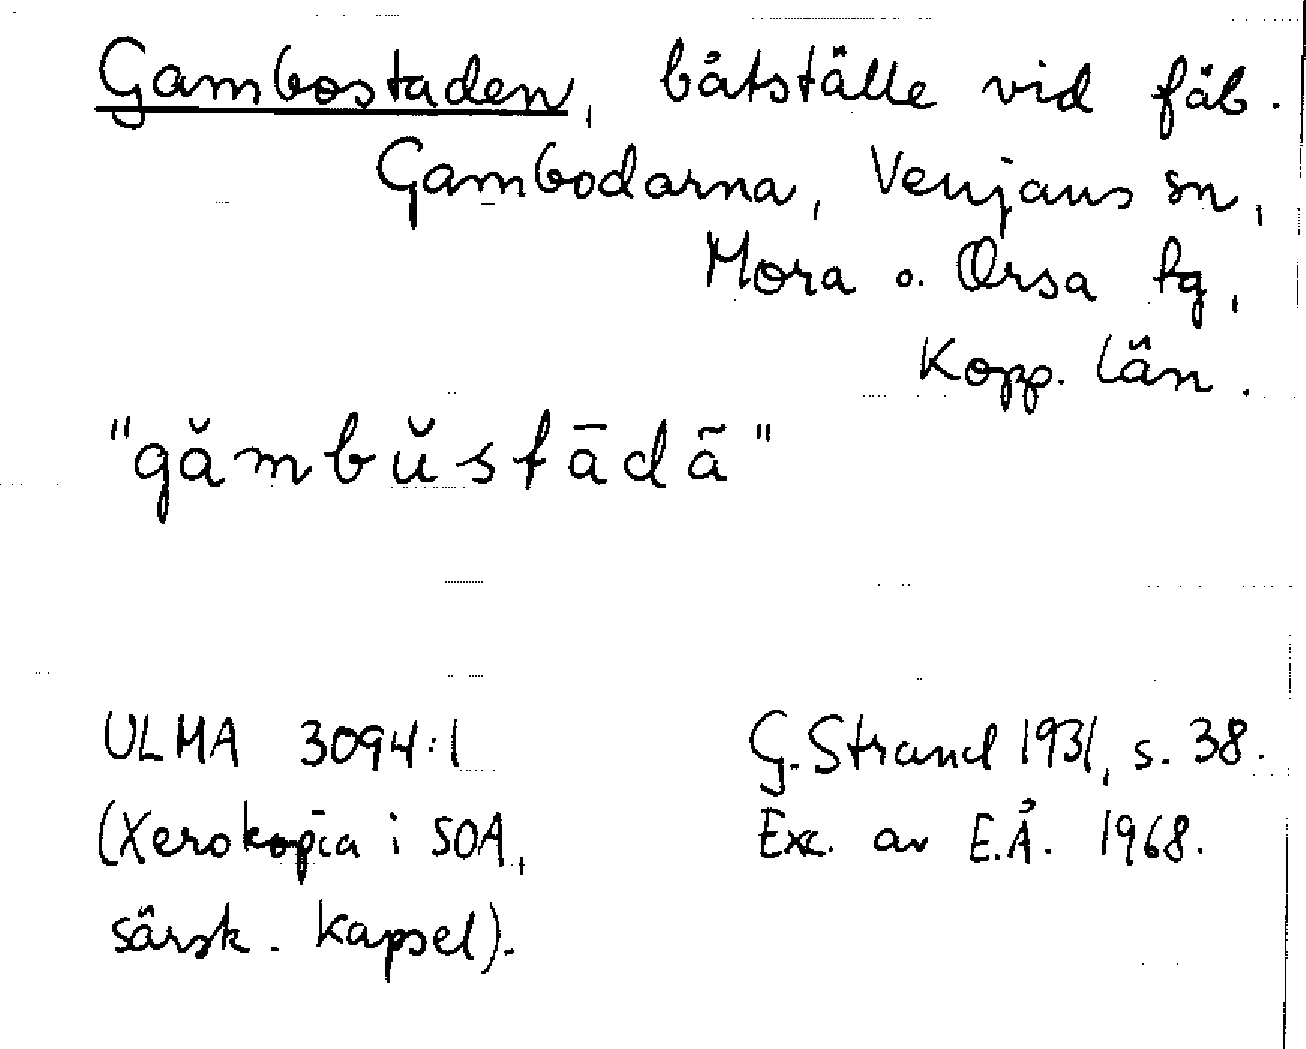 Gambostaden, båtställe vid fäb.
Gambodarna, Venjans sn,
Mora o. Orsa tg,
Kopp. län.
"găm b ŭ s t ā d ã"
ULMA 3094:1
G. Strand 1931, s. 38.
(Xerokopia i SOA,
Exc. av E.Å. 1968.
särsk. kapsel).